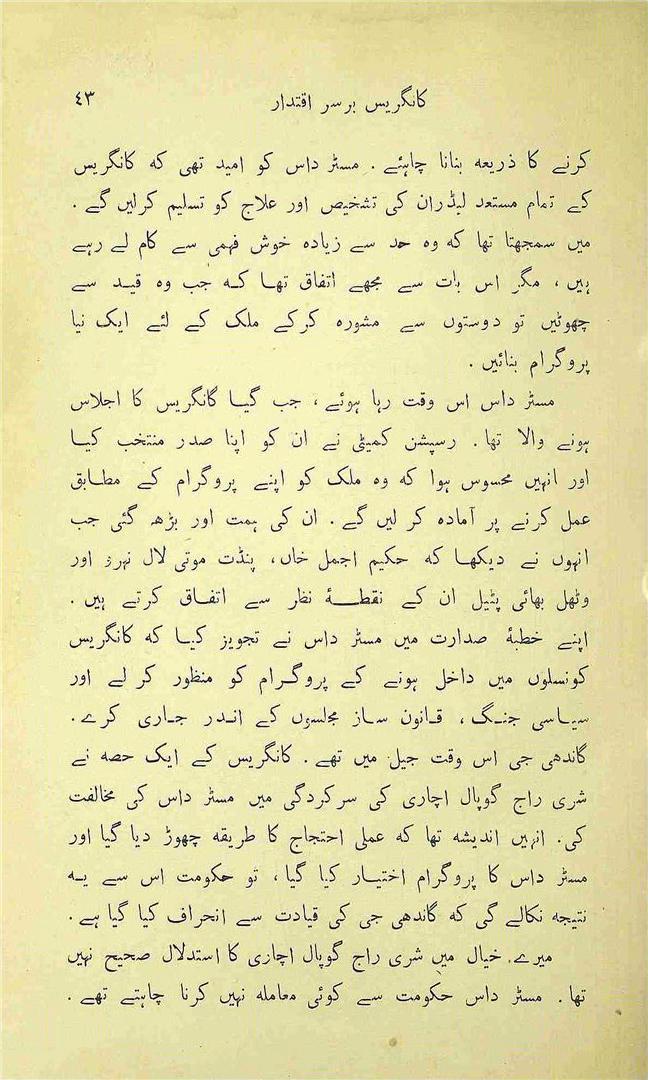 کانگریس برسر اقتدار ٤٣
کرنے کا ذریعہ بنانا چاہئے . مسٹر داس کو امید تھی کہ کانگریس
کے تمام مستعد لیڈران کی تشخیص اور علاج کو تسلیم کرلیں گے .
میں سمجھتا تھا کہ وہ حد سے زیادہ خوش فہمی سے کام لے رہے
ہیں ، مگر اس بات سے مجھے اتفاق تھا کہ جب وہ قید سے
چھوٹیں تو دوستوں سے مشورہ کرکے ملک کے لئے ایک نیا
پروگرام بنائیں .
مسٹر داس اس وقت رہا ہوئے ، جب گیا کانگریس کا اجلاس
ہونے والا تھا . رسپشن کمیٹی نے ان کو اپنا صدر منتخب کیا
اور انہیں محسوس ہوا کہ وہ ملک کو اپنے پروگرام کے مطابق
عمل کرنے پر آمادہ کر لیں گے . ان کی ہمت اور بڑھ گئی جب
انہوں نے دیکھا کہ حکیم اجمل خاں، پنڈت موتی لال نہرو اور
وٹھل بھائی پٹیل ان کے نقطۂ نظر سے اتفاق کرتے ہیں .
اپنے خطبۂ صدارت میں مسٹر داس نے تجویز کیا کہ کانگریس
کونسلوں میں داخل ہونے کے پروگرام کو منظور کر لے اور
سیاسی جنگ ، قانون ساز مجلسوں کے اندر جاری کرے .
گاندھی جی اس وقت جیل میں تھے . کانگریس کے ایک حصہ نے
شری راج گوپال اچاری کی سرکردگی میں مسٹر داس کی مخالفت
کی . انہیں اندیشہ تھا کہ عملی احتجاج کا طریقہ چھوڑ دیا گیا اور
مسٹر داس کا پروگرام اختیار کیا گیا ، تو حکومت اس سے یہ
نتیجہ نکالے گی کہ گاندھی جی کی قیادت سے انحراف کیا گیا ہے .
میرے خیال میں شری راج گوپال اچاری کا استدلال صحیح نہیں
تھا . مسٹر داس حکومت سے کوئی معاملہ نہیں کرنا چاہتے تھے .